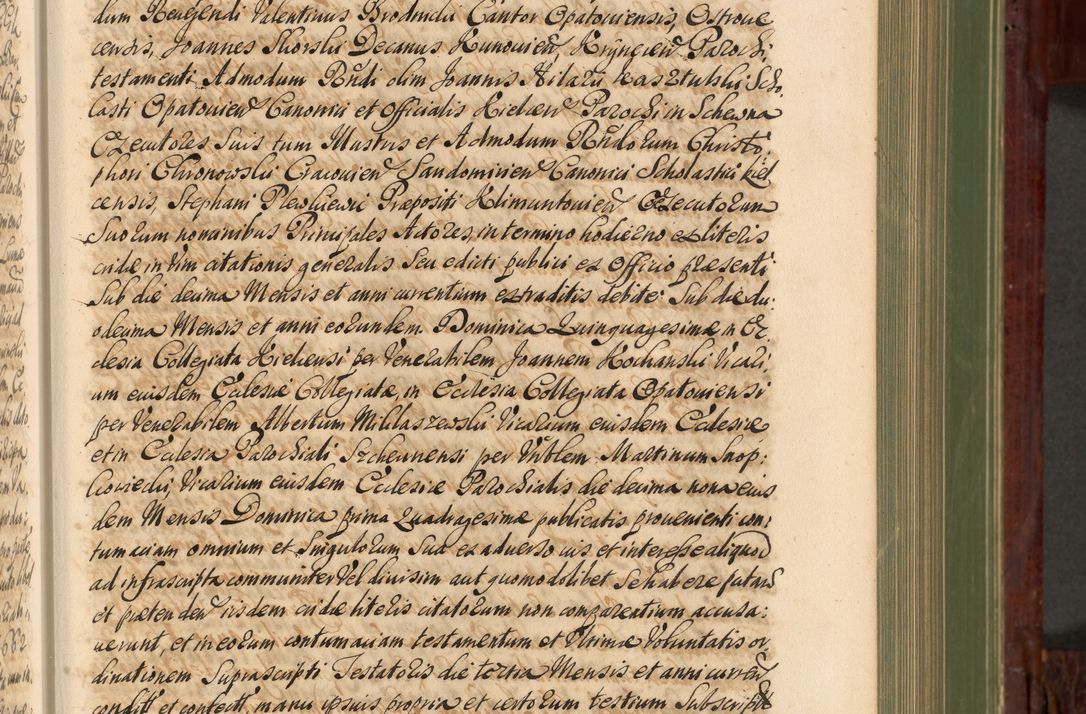 dum Reverendi Valentinus Brodnicki Cantor Opatoviensis, Ostrove
censis, Joannes Skorski Decanus Kunovien Parochi,
testamenti Admodum Rndi olim Joannis Hilarii Scho
lasti Opatovien Canonici et Officialis Kielcen Parochi in Schewna
Executores Suis tum Mgstrs et Admodum Rndorum Christo
phori Chronowski Cracovien Sandomirien Canonici Scholastici Kiel
censis, Stephani Præpositi Klimuntovien Executorum
Suorum nominibus Principales Actores, in termino hodierno ex literis
cridæ in vim citationis generalis Seu edicti publici ex Officio præsenti
Sub die decima Mensis et anni currentium extraditis debite Sub die du
odecima Mensis et anni eorundem Dominica Quinquagesimæ in Ec
clesia Collegiata Kielcensi per Venerabilem Joannem Kochanski Vicari
um eiusdem Ecclesiæ Collegiatæ, in Ecclesia Collegiata Opatoviensi
per Venerabilem Albertum Miklaszewski Vicarium eiusdem Ecclesiæ
et in Ecclesia Parochiali per Vnblem Martinum Snop:
Vicarium eiusdem Ecclesiæ Parochialis die decima nona eius
dem Mensis Dominica prima Quadragesimæ publicatis provenienti con:
tumaciam omnium et Singulorum Sua ex adverso vis et interesse aliquod
ad infrascripta communiter Vel divisim aut quomodolibet Se habere putan
et præten den iisdem cridæ literis citatorum non comparentium accusa:
verunt, et in eorum contumaciam testamentum et Ultimæ Voluntatis or
dinationem Suprascripti Testatoris die tertia Mensis et anni curren
condit et confect, manu ipsius propria et certorum testium Subscript